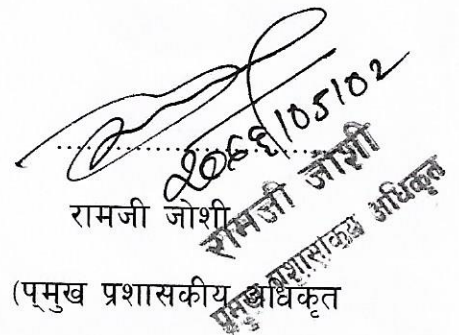 २०७९/०5/०2
रामजी जोशी
रामजी जोशी
(प्रमुख प्रशासकीय अधिकृत
प्रमुख प्रशासकीय अधिकृत